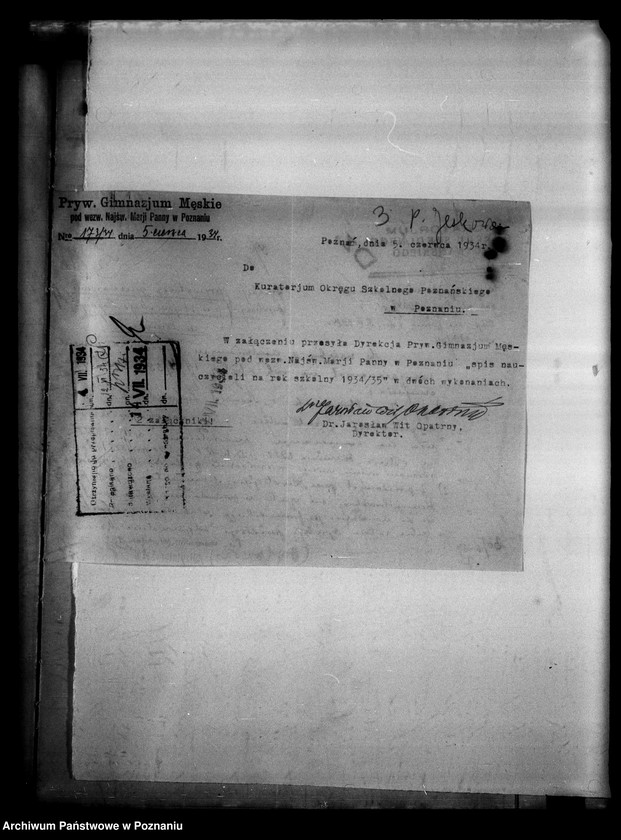 Pryw. Gimnazjum Męskie
pod wezw. Najśw. Marji Panny w Poznaniu
dnia 5 czerwca 1934 r.
3 P.
Poznań, dnia 5. czerwca 1934 r.
Do
Kuratorjum Okręgu Szkolnego Poznańskiego
w Poznaniu.
W załączeniu przesyła Dyrekcja Pryw. Gimnazjum Męs-
kiego pod wezw. Najśw. Marji Panny w Poznaniu „spis nau-
czycieli na rok szkolny 1934/35" w dwóch wykonaniach.
Dr. Jarosław Wit Opatrny.
Dyrektor.
2 załączniki
4 VII. 1934
VII 1934
Archiwum Państwowe w Poznaniu